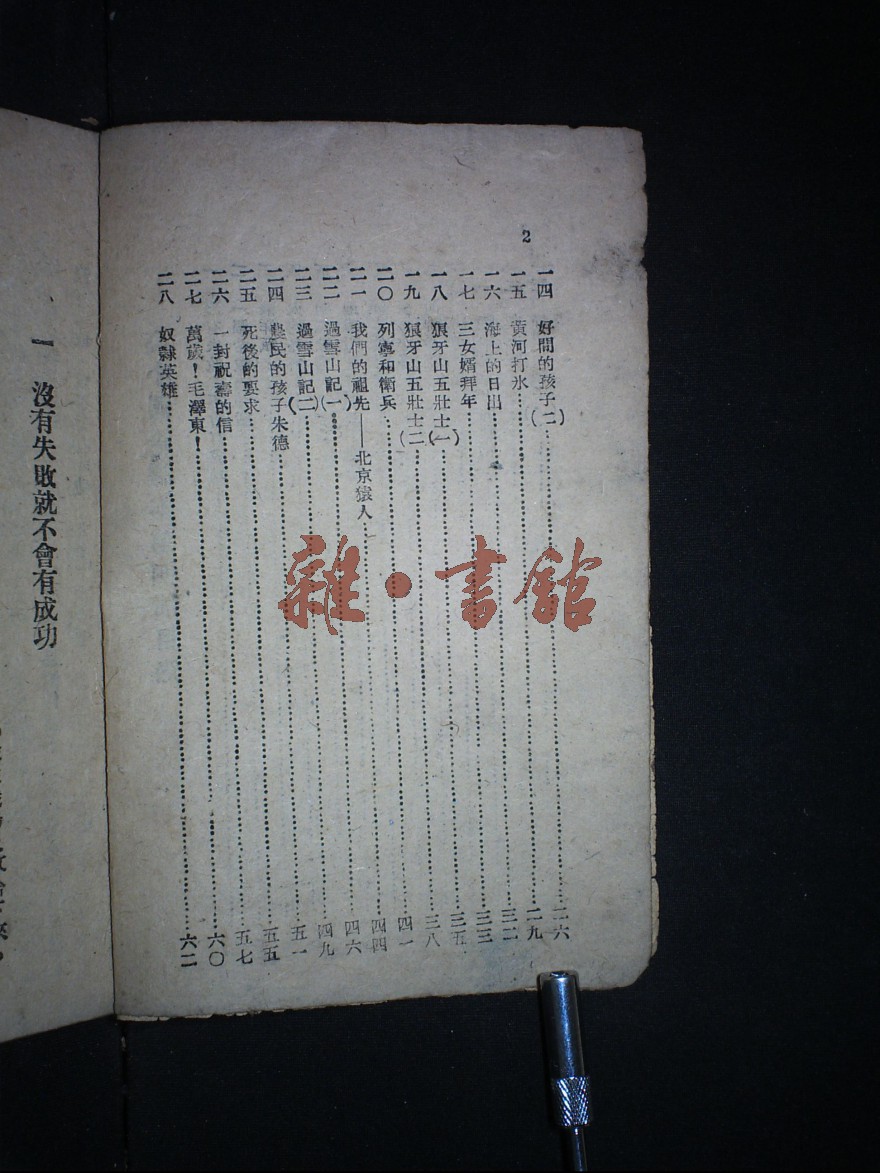 2
一四 好問的孩子(二)…………二六
一五 黃河打氷…………二九
一六 海上的日出…………三二
一七 三女婿拜年…………三三
一八 狼牙山五壯士(一)…………三五
一九 狼牙山五壯士(二)…………三八
二〇 列寧和衛兵…………四一
二一 我們的祖先——北京猿人…………四四
二二 過雪山記(一)…………四六
二三 過雪山記(二)…………四九
二四 農民的孩子朱德…………五一
二五 死後的要求…………五五
二六 一封祝壽的信…………五七
二七 萬歲!毛澤東!…………六〇
二八 奴隸英雄…………六二
一 沒有失敗就不會有成功
雜·書館